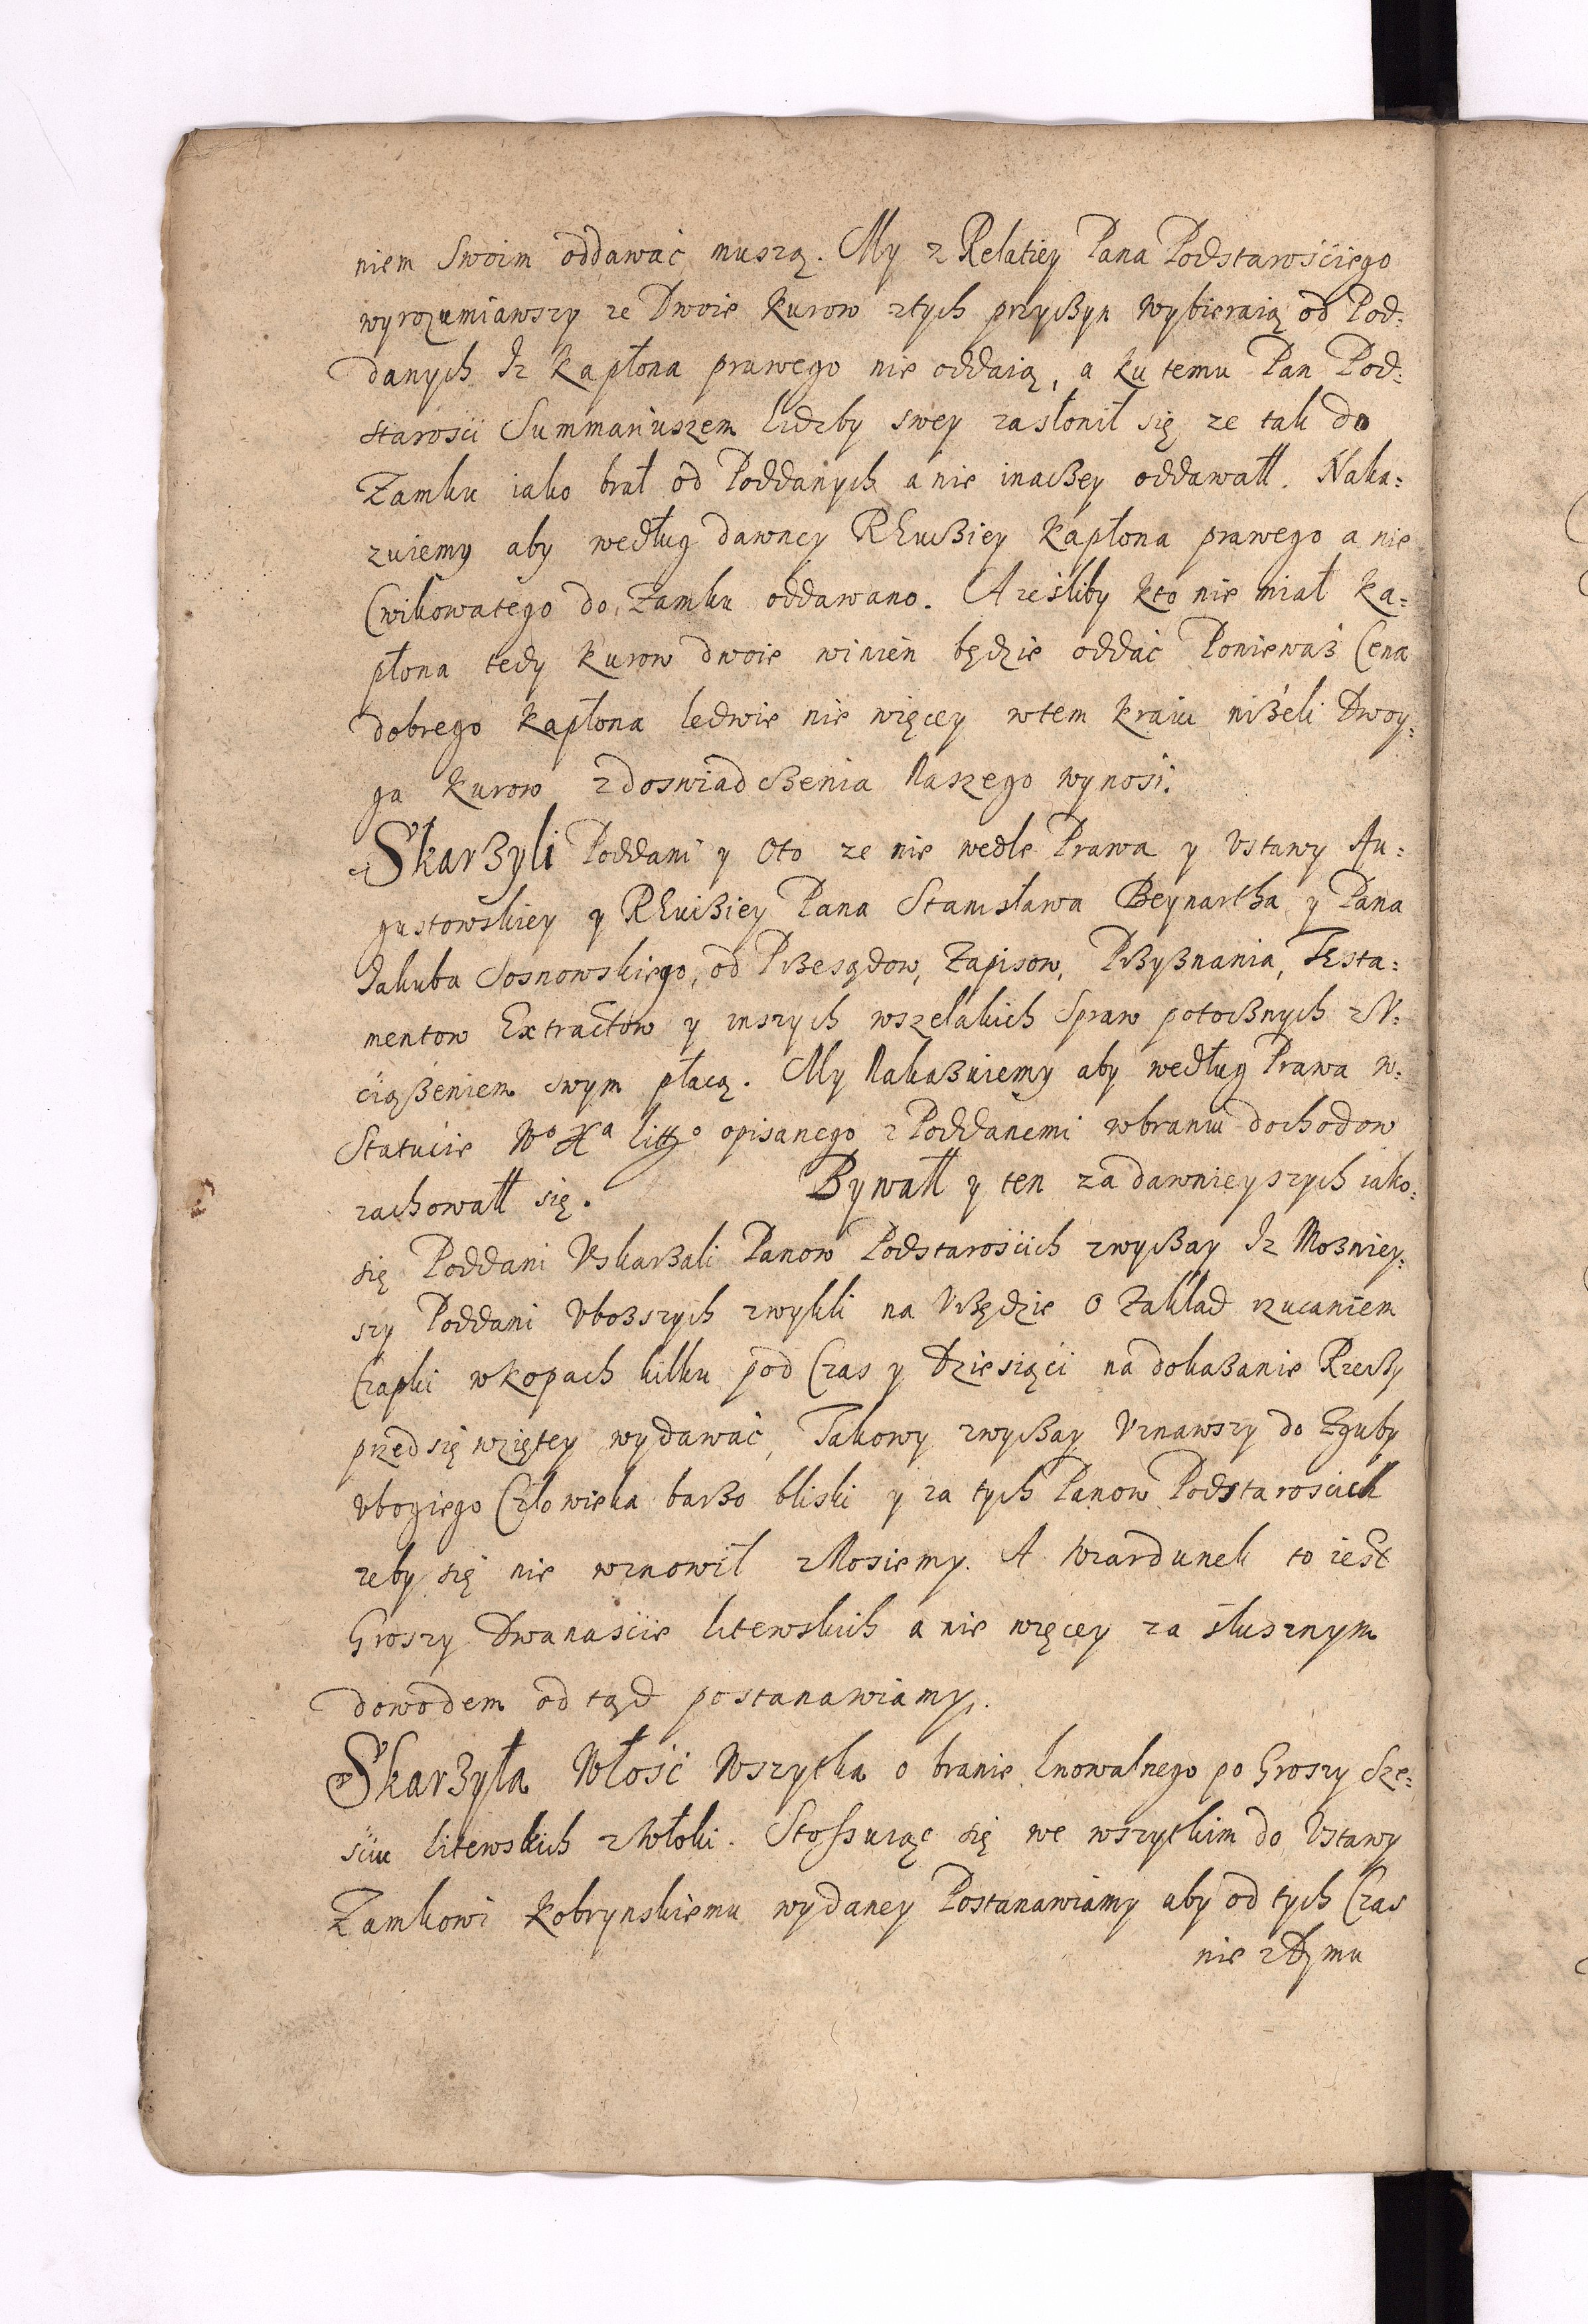 niem Swoim oddawać muszą. My z Relatiey Pana Podstarościego
wyrozumiawszy ze Dwoie Kurow ztych przyczyn Wybieraią od Pod:
danych Iz Kapłona prawego nie oddaią, a ku temu Pan Pod:
starosci Summariuszem liczby swey zasłonił się ze tak do
Zamku iako brał od Poddanych a nie inaczey oddawałł. Naka:
zuiemy aby według dawney REwißiey Kapłona prawego a nie
Cwikowatego do Zamku oddawano. A ieśliby kto nie miał Ka:
płona tedy Kurow dwoie winien będzie oddać Poniewaß Cena
dobrego Kapłona ledwie nie więcey wtem Kraiu nißeli Dwoy:
ga Kurow zdoswiadczenia Naszego wynosi.
Skarżyli Poddani y Oto ze nie wedle Prawa y Ustawy Au:
gustowskiey y REwißiey Pana Stanisława Beynartha y Pana
Jakuba Sosnowskiego, od Przesądow, Zapisow, Przyßnania, Testa:
mentow Extractow y inszych wszelakich Spraw potocznych z U:
ciążeniem swym płacą. My Nakaßuiemy aby według Prawa w:
Statucie Wo Xa litto opisanego z Poddanemi wbraniu dochodow
zachowałł się. Bywałł y ten za dawnieyszych iako:
się Poddani Uskarßali Panow Podstarościch zwyczay Iz Możniey:
szy Poddani Uboższych zwykli na Urzędzie O Zakład rzucaniem
Czapki w Kopach kilku pod Czas y Dziesiąci na dokaßanie Rzeczy
przedsięwziętey wydawać, Takowy zwyczay Uznawszy do Zguby
ubogiego Człowieka barßo bliski y za tych Panow Podstaroscich
żeby się nie wznowił znosiemy. A Wiardunek to iest
Groszy Dwanaście litewskich a nie więcey za słusznym
dowodem od tąd postanawiamy.
Skarżyła Włość Wszytka o branie Lnowalnego po Groszy Sze:
sciu litewskich z Włoki. Stossuiąc się we wszytkim do Ustawy
Zamkowi Kobrynskiemu wydaney Postanawiamy aby od tych Czas
nie z Dymu